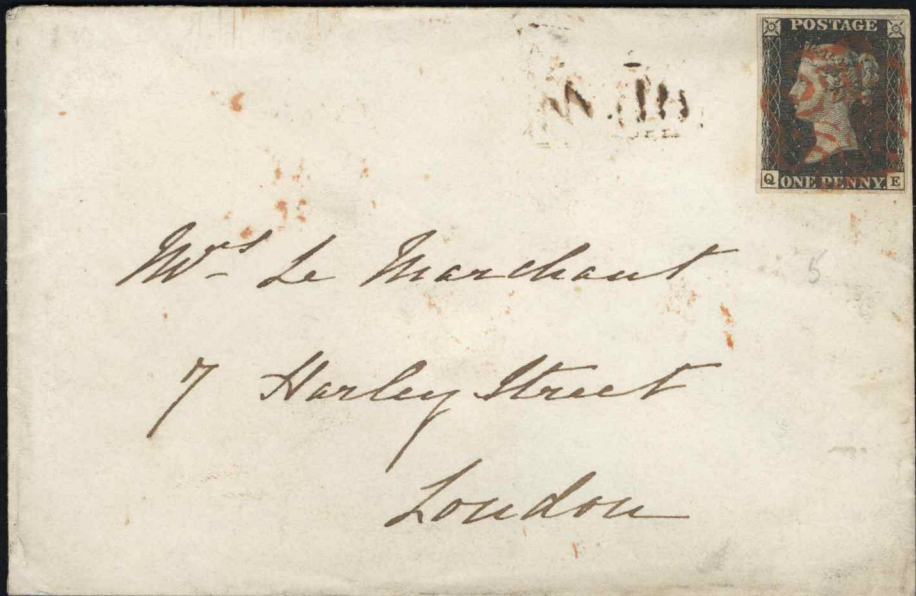 POSTAGE
Q ONE PENNY E
5
Mrs Le Marchant
7 Harley Street
London